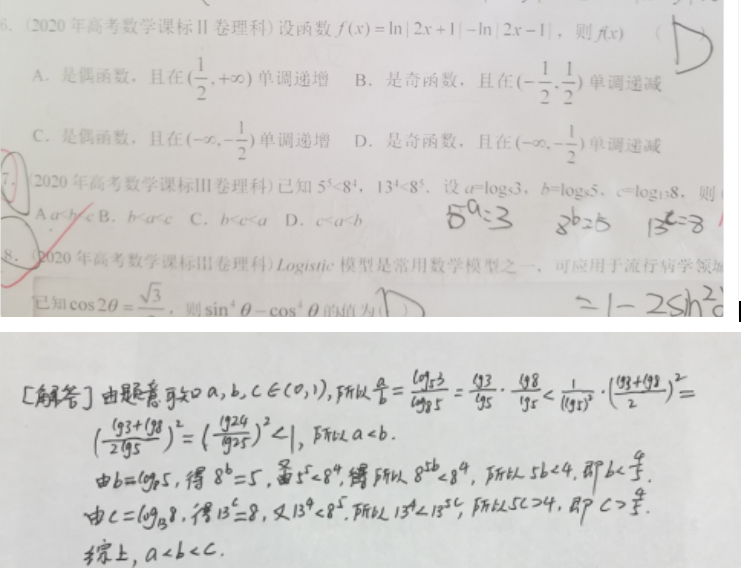 6.（2020年高考数学课标Ⅱ卷理科）设函数 f(x)=ln|2x+1|-ln|2x-1|，则 f(x) （D）
A．是偶函数，且在(1/2,+∞)单调递增 B．是奇函数，且在(-1/2,1/2)单调递减
C．是偶函数，且在(-∞,-1/2)单调递增 D．是奇函数，且在(-∞,-1/2)单调递减
7.（2020年高考数学课标Ⅲ卷理科）已知 5⁵<8⁴，13⁴<8⁵．设 a=log₅3，b=log₈5，c=log₁₃8，则（
A a<b<c B．b<a<c C．b<c<a D．c<a<b 5ᵃ=3 8ᵇ=5 13ᶜ=8
8.（2020年高考数学课标Ⅲ卷理科）Logistic 模型是常用数学模型之一，可应用于流行病学领域
已知cos2θ=√3/，则sin⁴θ-cos⁴θ的值为（D） =1-2sin²
[解答]由题意可知 a,b,c∈(0,1),所以 a/b=log₅3/log₈5=lg3/lg5·lg8/lg5<1/(lg5)²·((lg3+lg8)/2)²=
((lg3+lg8)/2lg5)²=(lg24/lg25)²<1,所以a<b.
由b=log₈5,得8ᵇ=5,由5⁵<8⁴,得所以8⁵ᵇ<8⁴,所以5b<4,即b<4/5.
由c=log₁₃8,得13ᶜ=8,又13⁴<8⁵,所以13⁴<13⁵ᶜ,所以5c>4,即c>4/5.
综上,a<b<c.